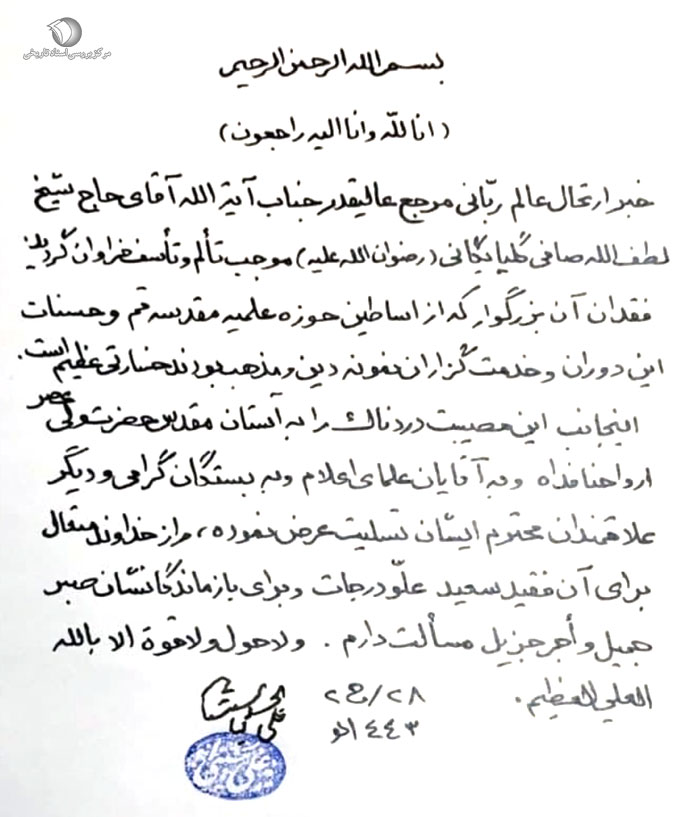 مرکز بررسی اسناد تاریخی
بسم الله الرحمن الرحیم
(انا للّه وانا الیه راجعون)
خبر ارتحال عالم ربّانی مرجع عالیقدر جناب آیة الله آقای حاج شیخ
لطف الله صافی گلپایگانی (رضوان الله علیه) موجب تألم وتأسف فراوان گردید
فقدان آن بزرگوار که از اساطین حوزه علمیه مقدسه قم و حسنات
این دوران و خدمت گزاران نمونه دین و مذهب بودند خسارتی عظیم است.
اینجانب این مصیبت دردناک را به آستان مقدس حضرت ولی عصر
ارواحنا فداه و به آقایان علمای اعلام و به بستگان گرامی و دیگر
علاقمندان محترم ایشان تسلیت عرض نموده، و از خداوند متعال
برای آن فقید سعید علّو درجات و برای بازماندگانشان صبر
جمیل و أجر جزیل مسألت دارم. ولا حول ولا قوة الا بالله
العلي العظیم.
٢٨/ج٢
١٤٤٣هـ
علی